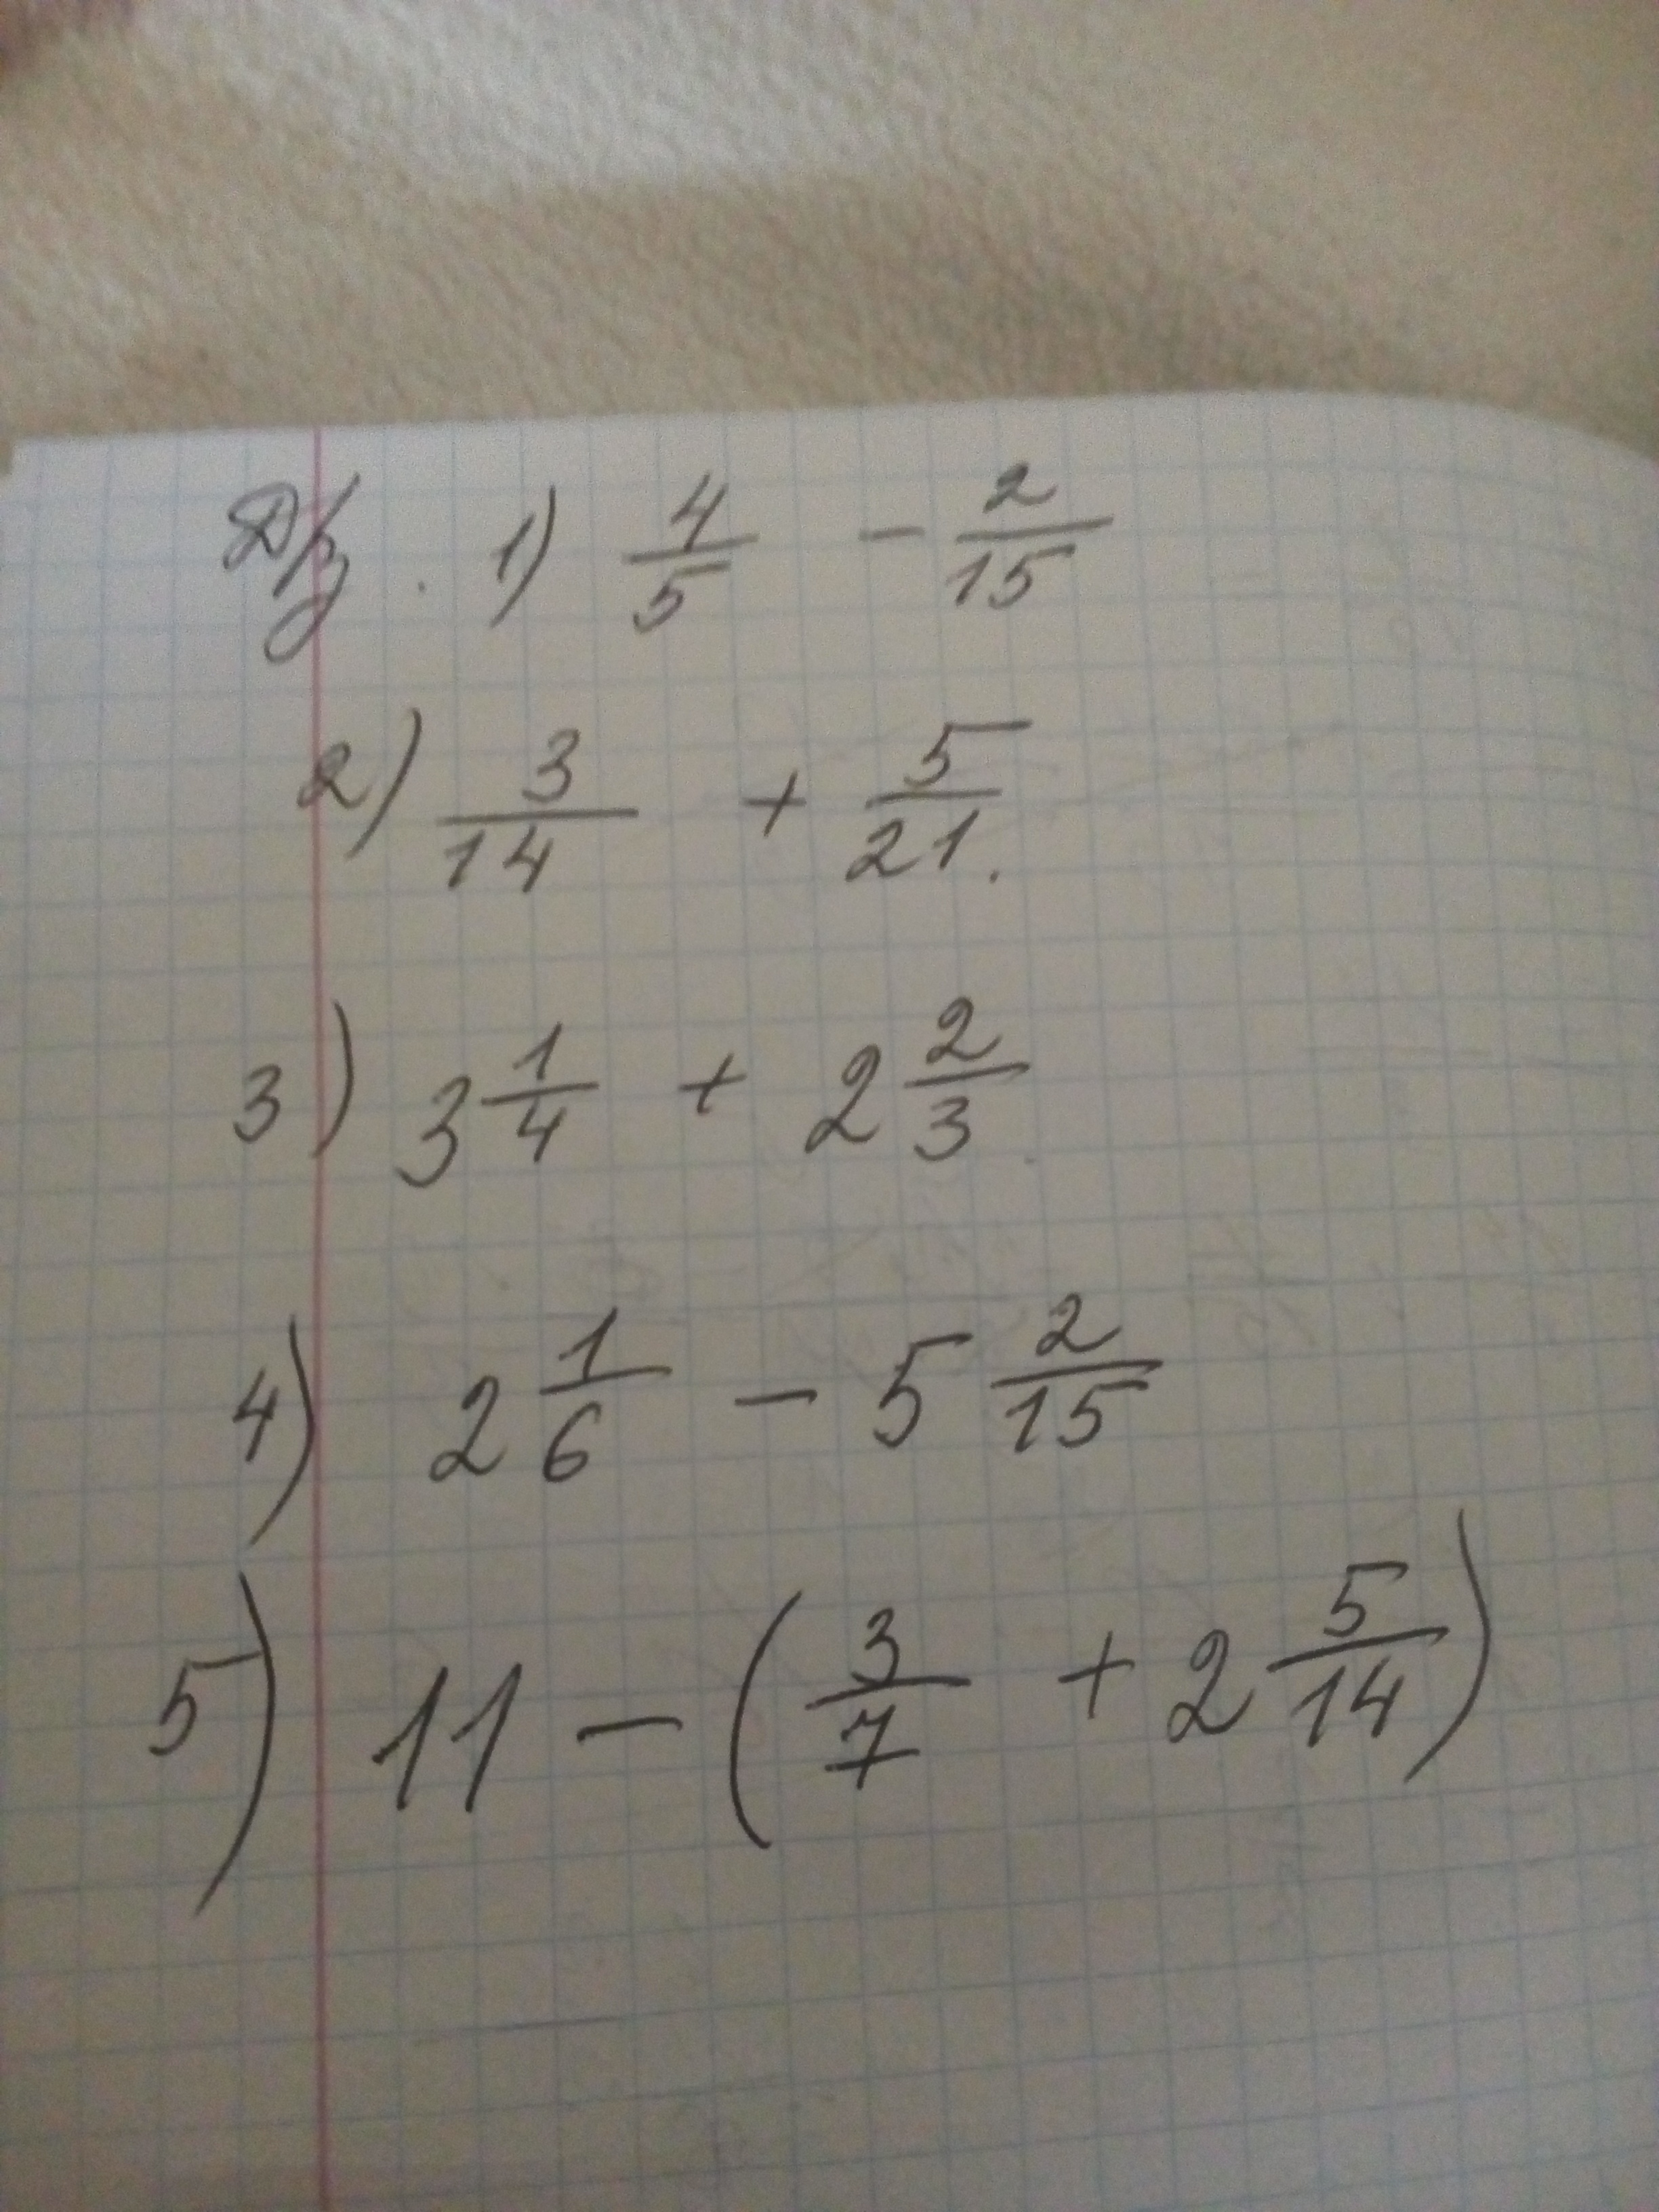 Д/з. 1) 4/5 - 2/15
2) 3/14 + 5/21.
3) 3 1/4 + 2 2/3
4) 2 1/6 - 5 2/15
5) 11 - (3/7 + 2 5/14)